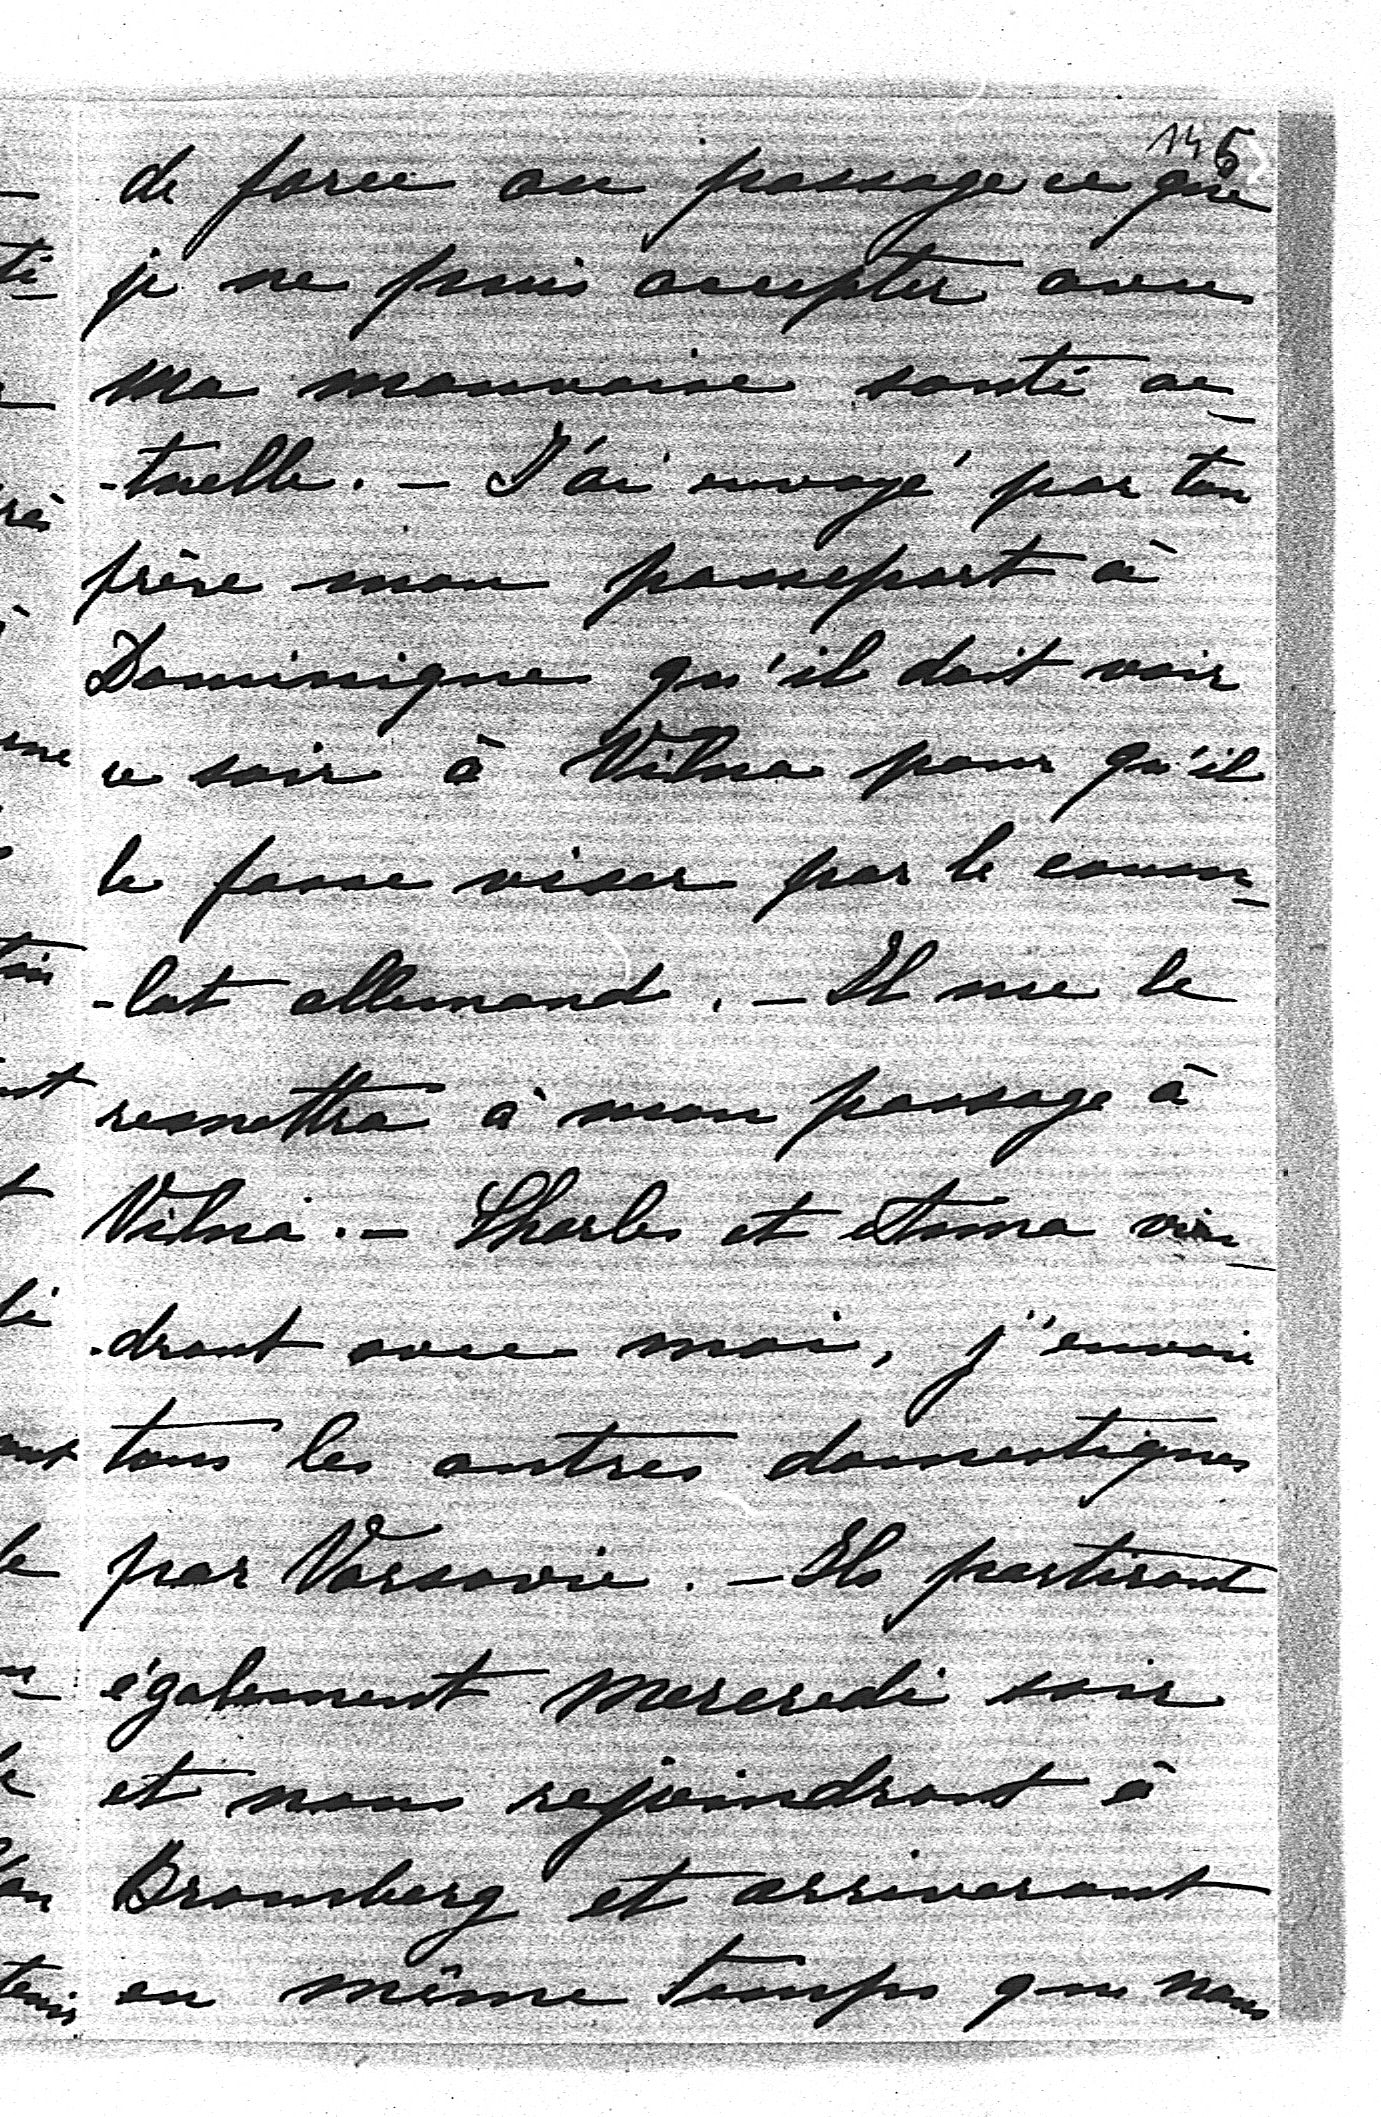 145
de force au passage ce que
je ne puis accepter avec
ma mauvaise santé ac-
-tuelle. - J'ai envoyé par ton
frère mon passeport à
Dominique qu'il doit voir
ce soir à Vilna pour qu'il
le fasse viser par le consu-
-lat allemand. - Il me le
remettra à mon passage à
Vilna. - Charles et Anna vien-
-dront avec moi, j'envoie
tous les autres domestiques
par Varsovie. - Ils partiront
également mercredi soir
et nous rejoindront à
Bromberg et arriveront
en même temps que nous